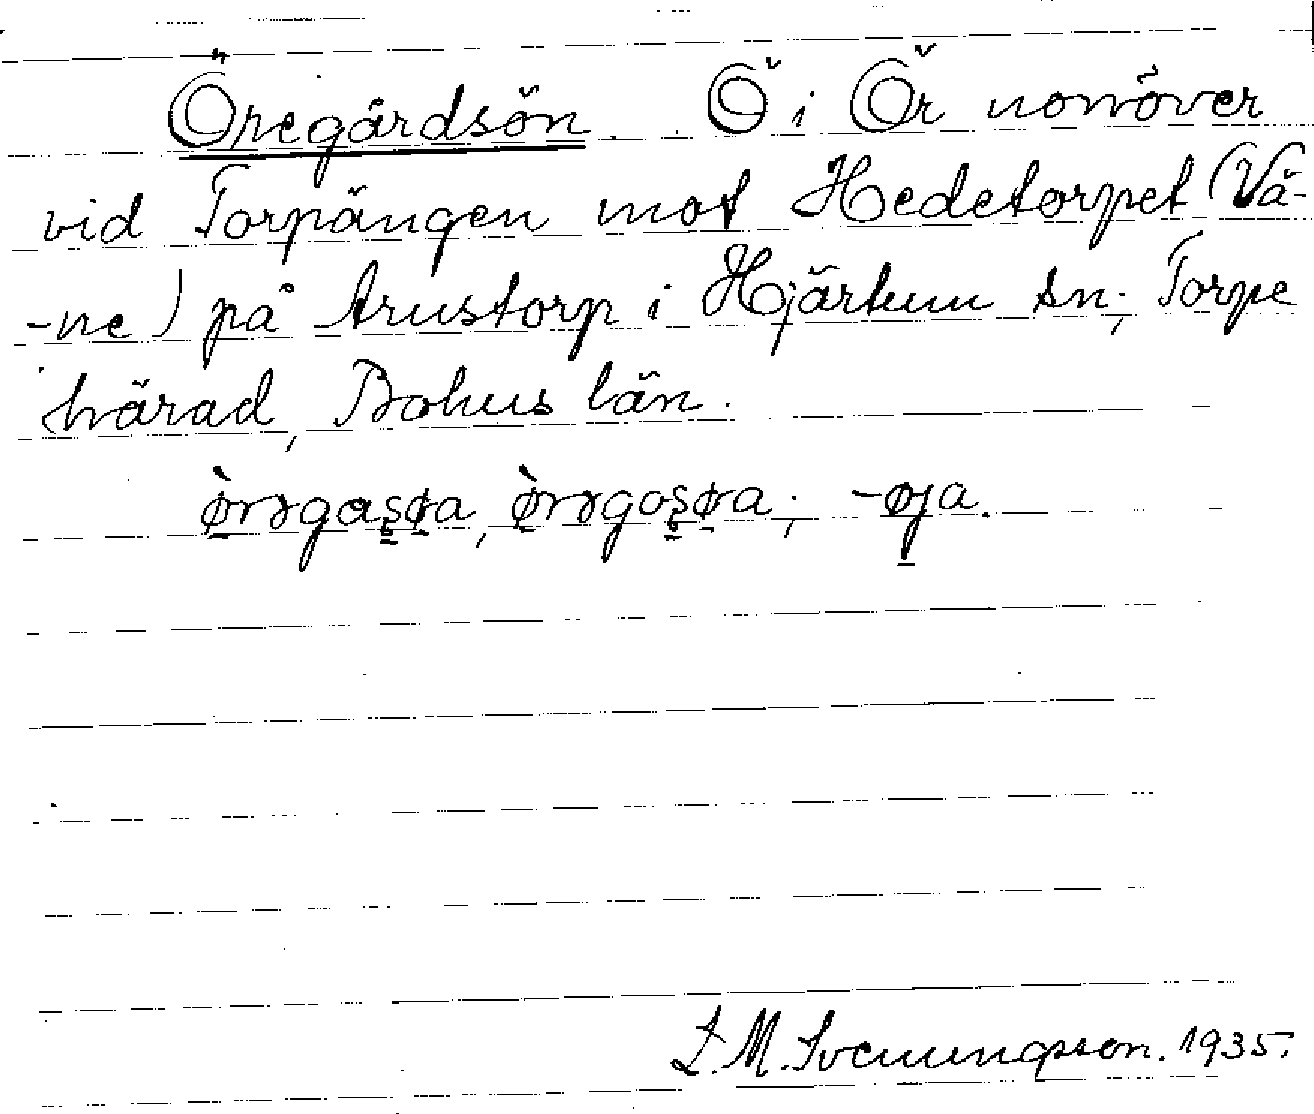 Öregårdsön. Ö i Ör norröver
vid Torpängen mot Hedetorpet (Vä-
-ne) på Krustorp i Hjärtum sn; Torpe
härad, Bohus län.
-øja.
L.M. Svenungsson. 1935.